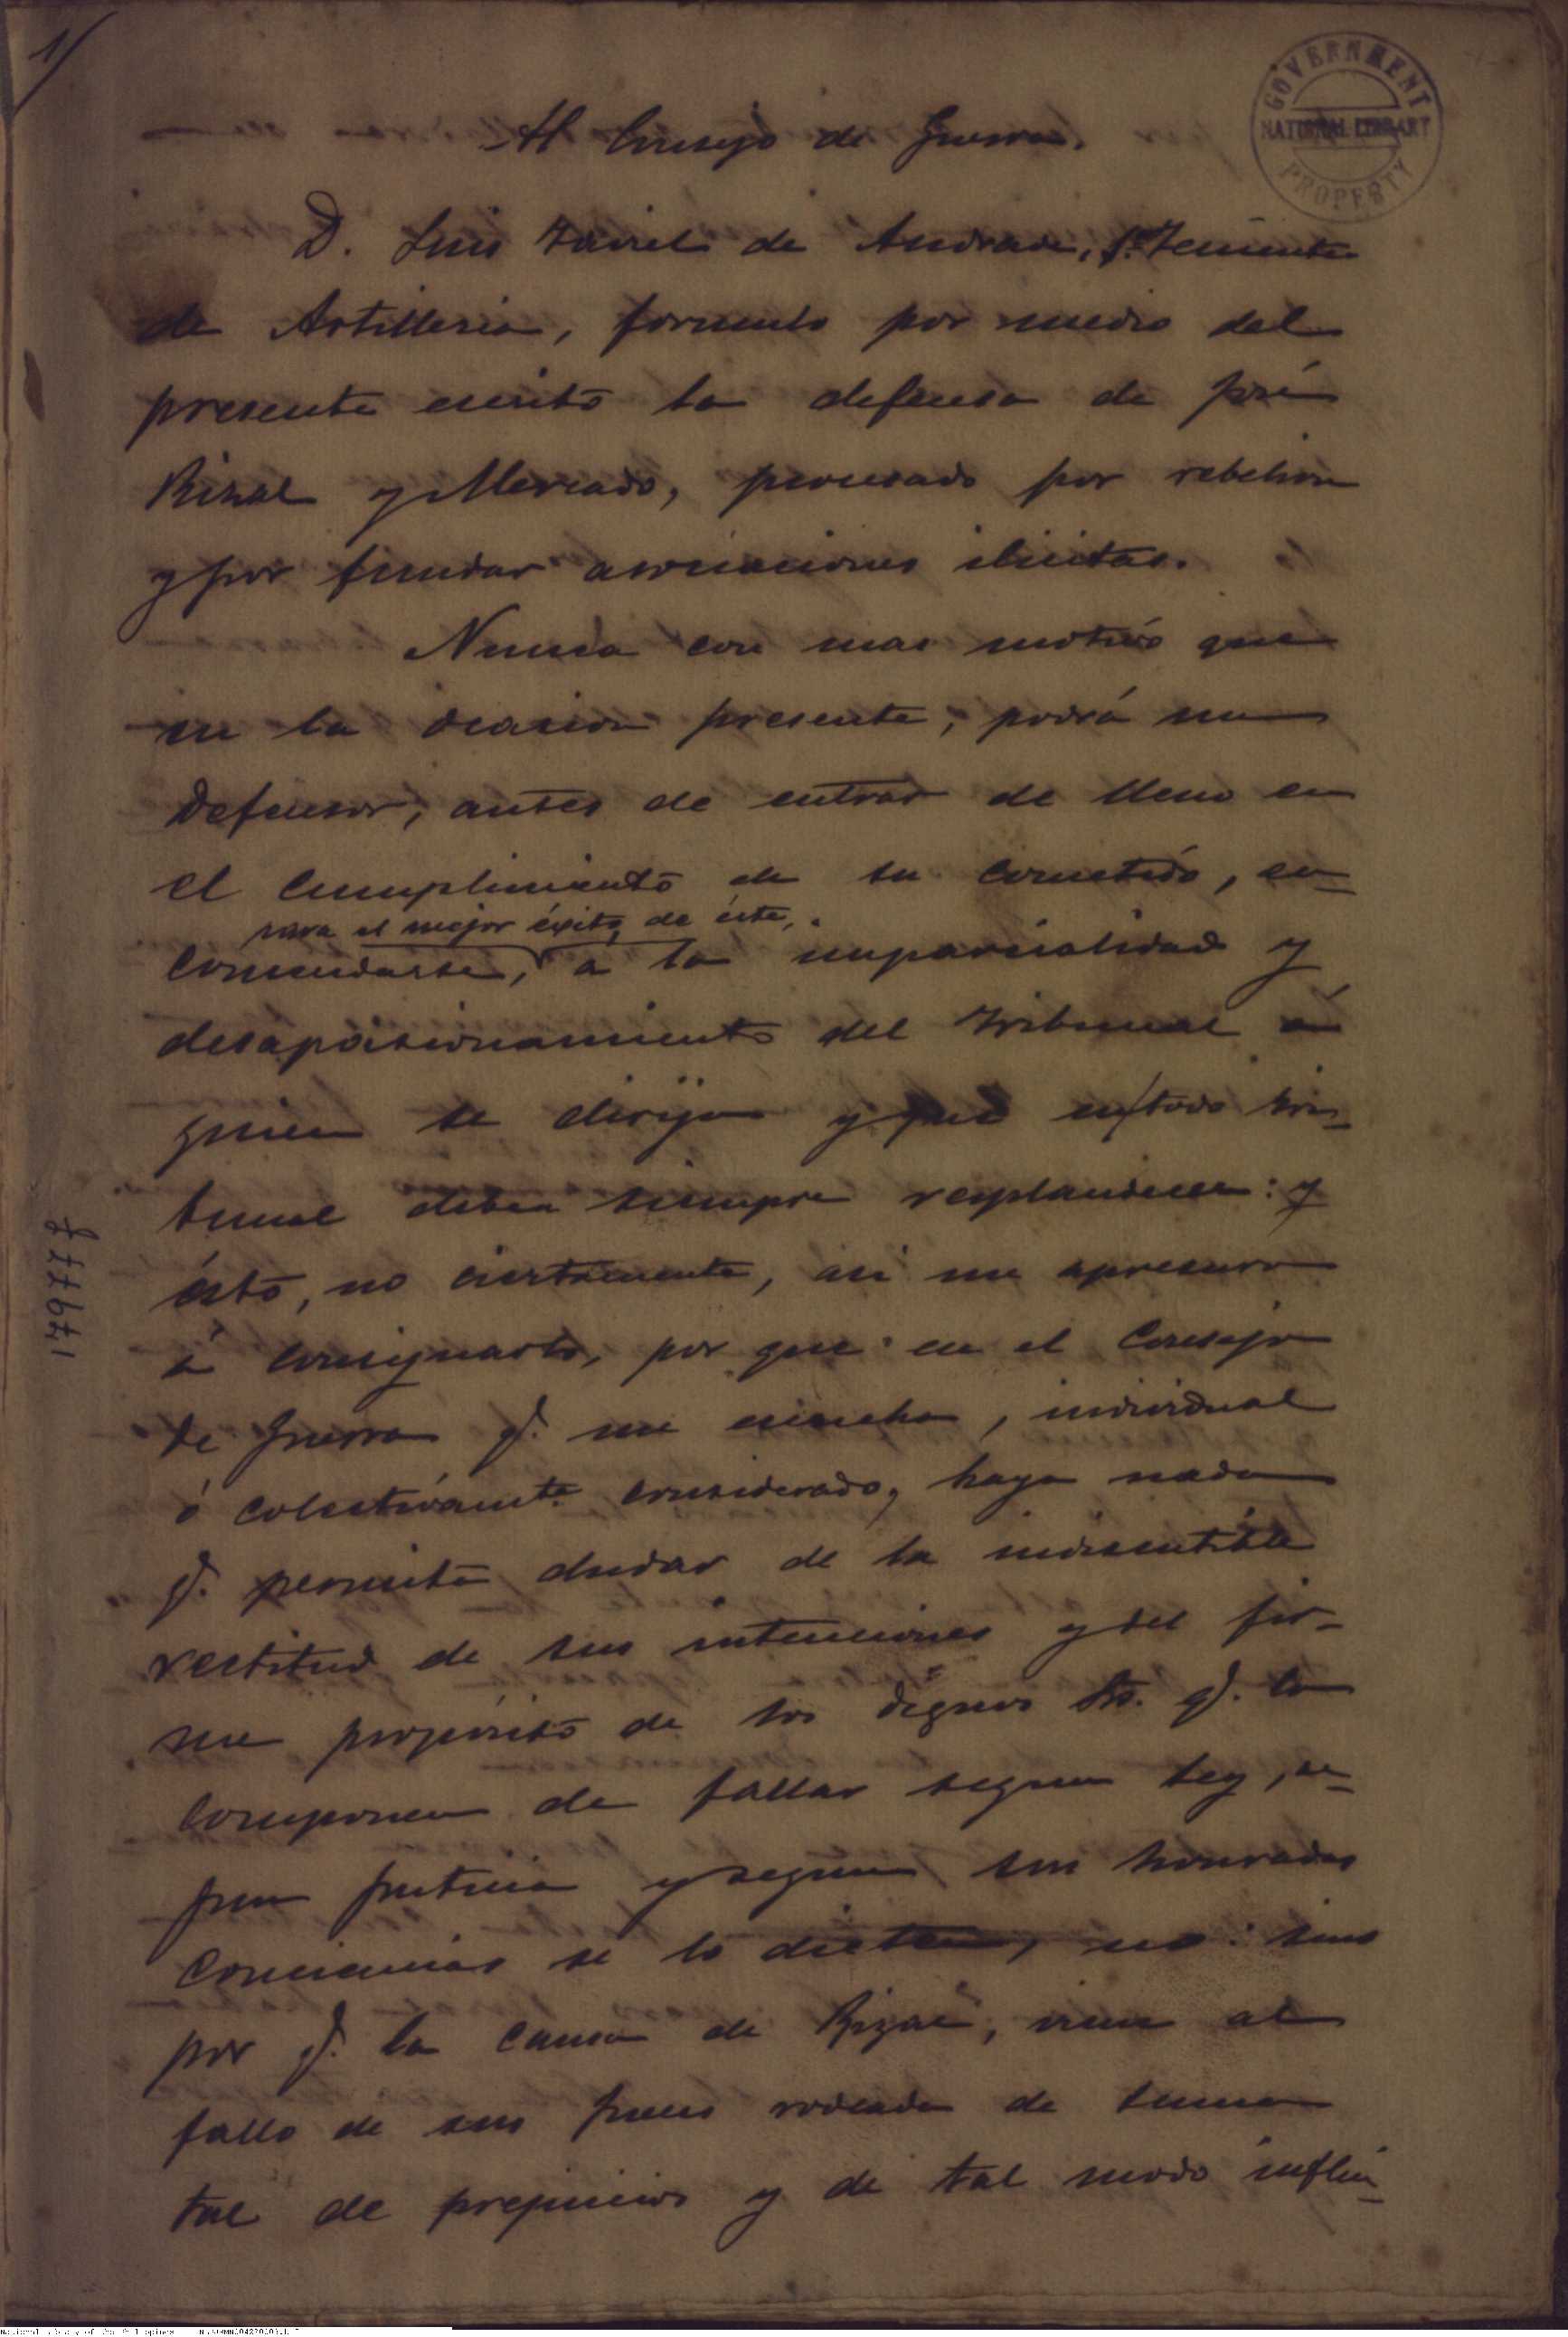 1/
GOVERNMENT
NATIONAL LIBRARY
PROPERTY
Al Consejo de Guerra.
D. Luis Taviel de Andrade, 1er Teniente
de Artilleria, formulo por medio del
presente escrito la defensa de José
Rizal y Mercado, procesado por rebelion
y por fundar asociaciones ilicitas.
Nunca con mas motivo que
en la ocasion presente, podrá un
Defensor, antes de entrar de lleno en
el cumplimiento de su cometido, en-
para el mejor éxito de éste,
comendarse, a la imparcialidad y
desapasionamiento del Tribunal á
quien se dirija y que en todo tri-
bunal deben siempre resplandecer: y
ésto, no ciertamente, asi me apresuro
á consignarlo, por que en el Consejo
de Guerra q. me escucha, individual
ó colectivamte. considerado, haya nada
q. permita dudar de la indiscutible
rectitud de sus intenciones y del fir-
me propósito de los dignos Srs. q. lo
componen de fallar segun ley, se-
gun justicia y segun sus honradas
conciencias se lo dicten, no: sino
por q. la causa de Rizal, viene al
fallo de sus jueces rodeada de suma
tal de prejuicios y de tal modo influi-